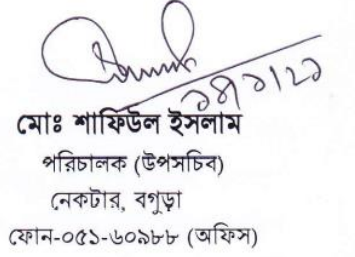 মোঃ শাফিউল ইসলাম
পরিচালক (উপসচিব)
নেকটার, বগুড়া
ফোন-০৫১-৬০৯৮৮ (অফিস)